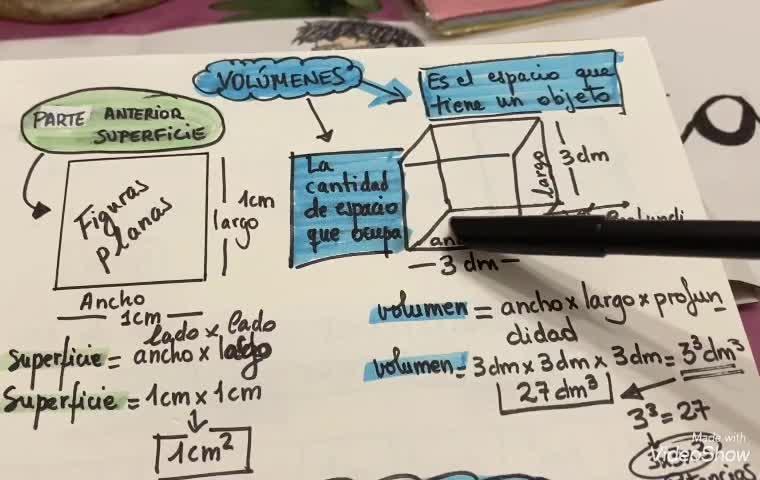 VOLÚMENES
Es el espacio que
tiene un objeto
PARTE ANTERIOR
SUPERFICIE
Figuras
planas
1cm
largo
Ancho
1cm
lado x lado
Superficie = ancho x largo
Superficie = 1cm x 1cm
1cm²
La
cantidad
de espacio
que ocupa
largo
3 dm
3 dm
volumen = ancho x largo x profun
didad
volumen = 3dm x 3dm x 3dm = 3³dm³
27 dm³
3³ = 27
Made with
VideoShow